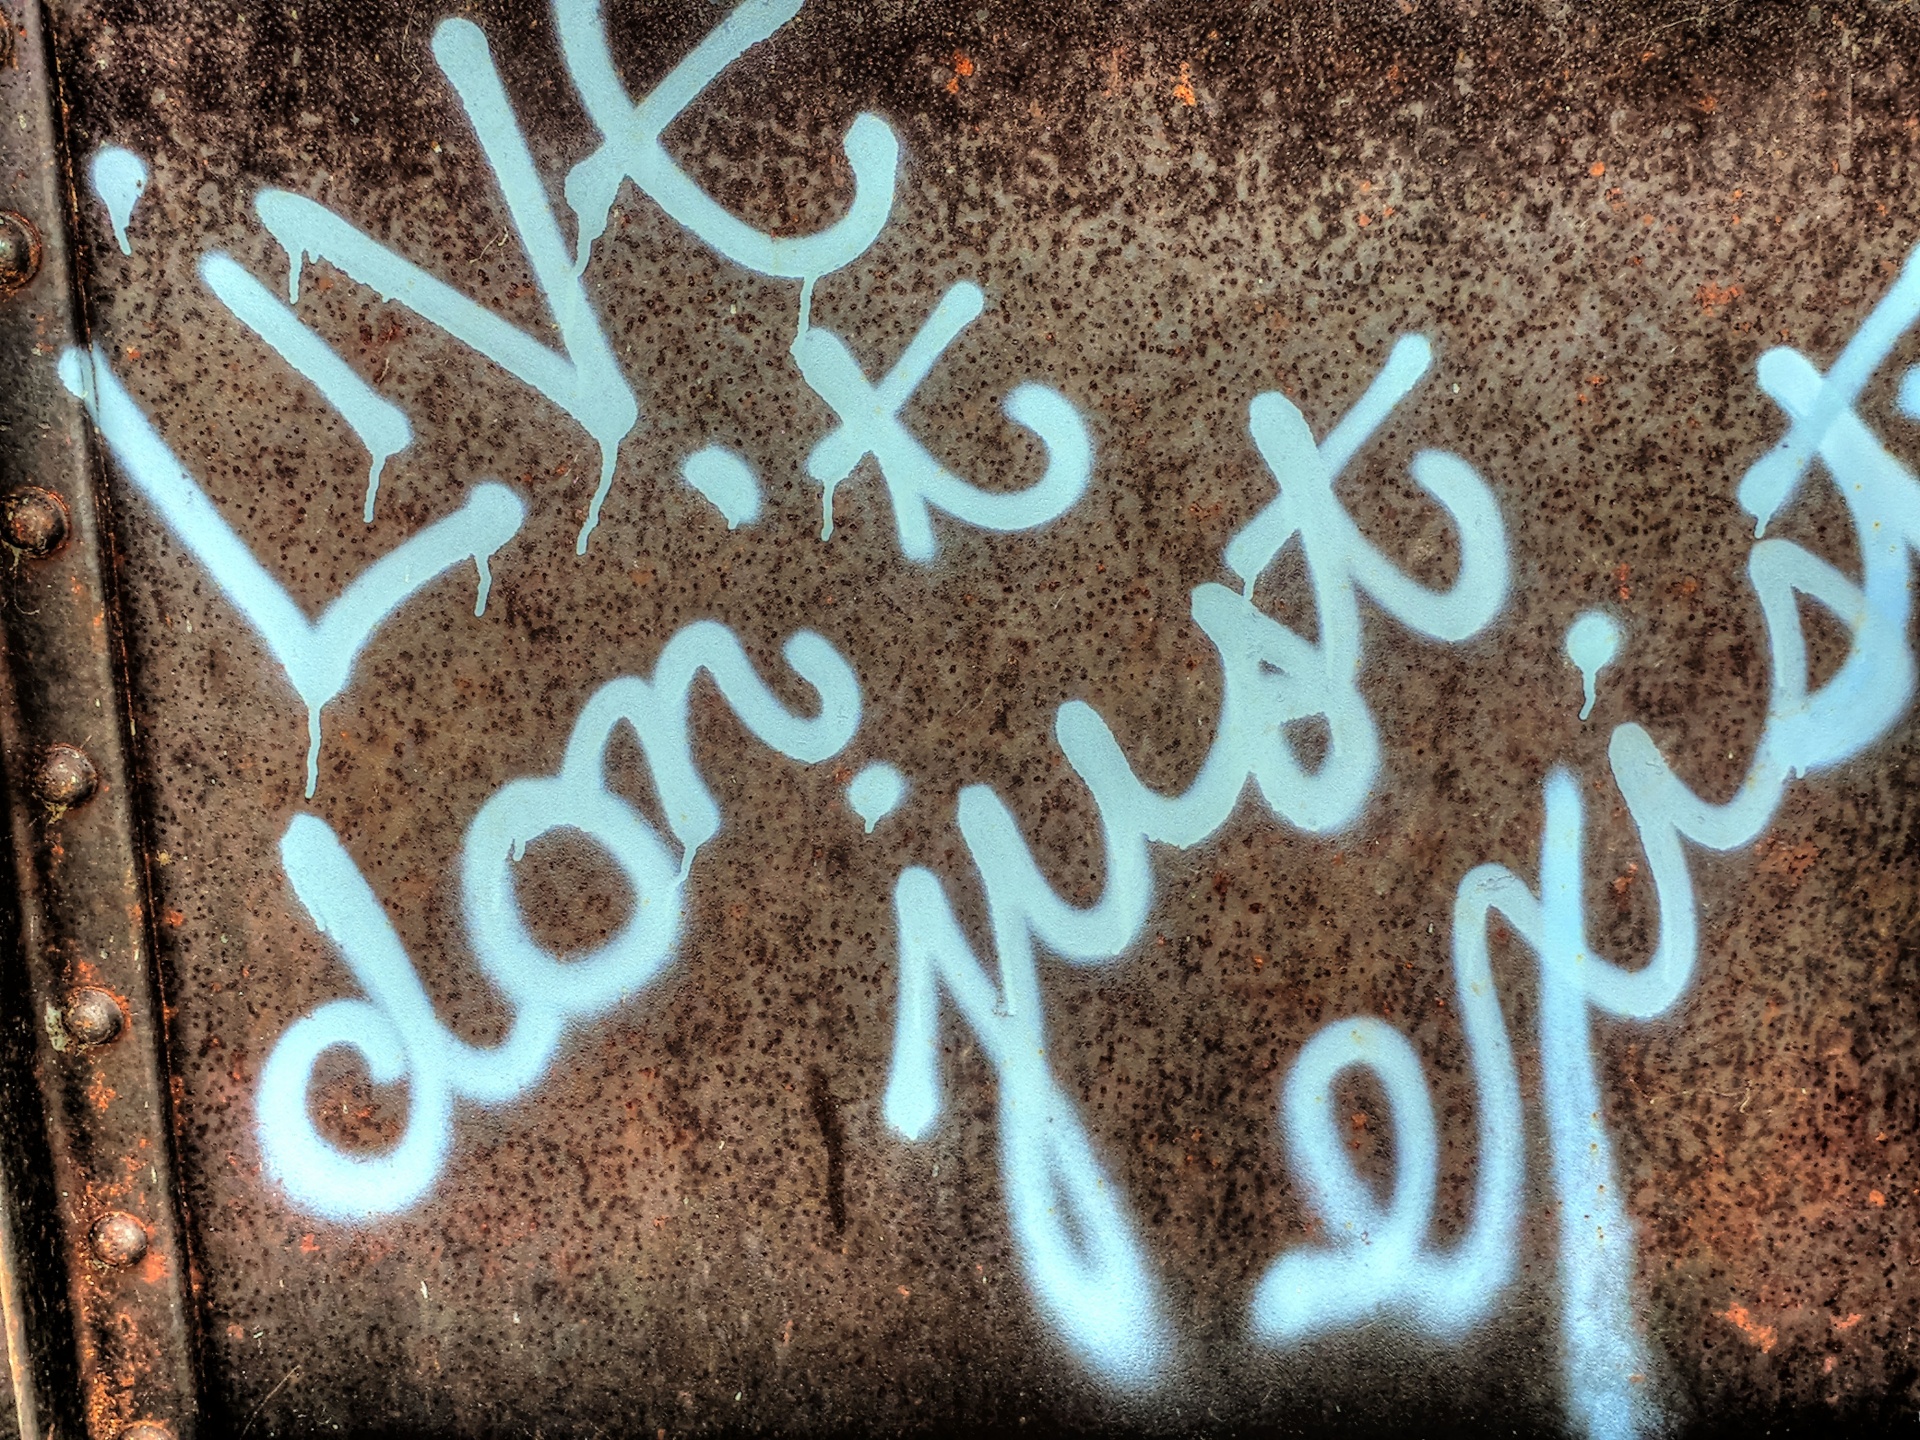 LIVE
don't just exist